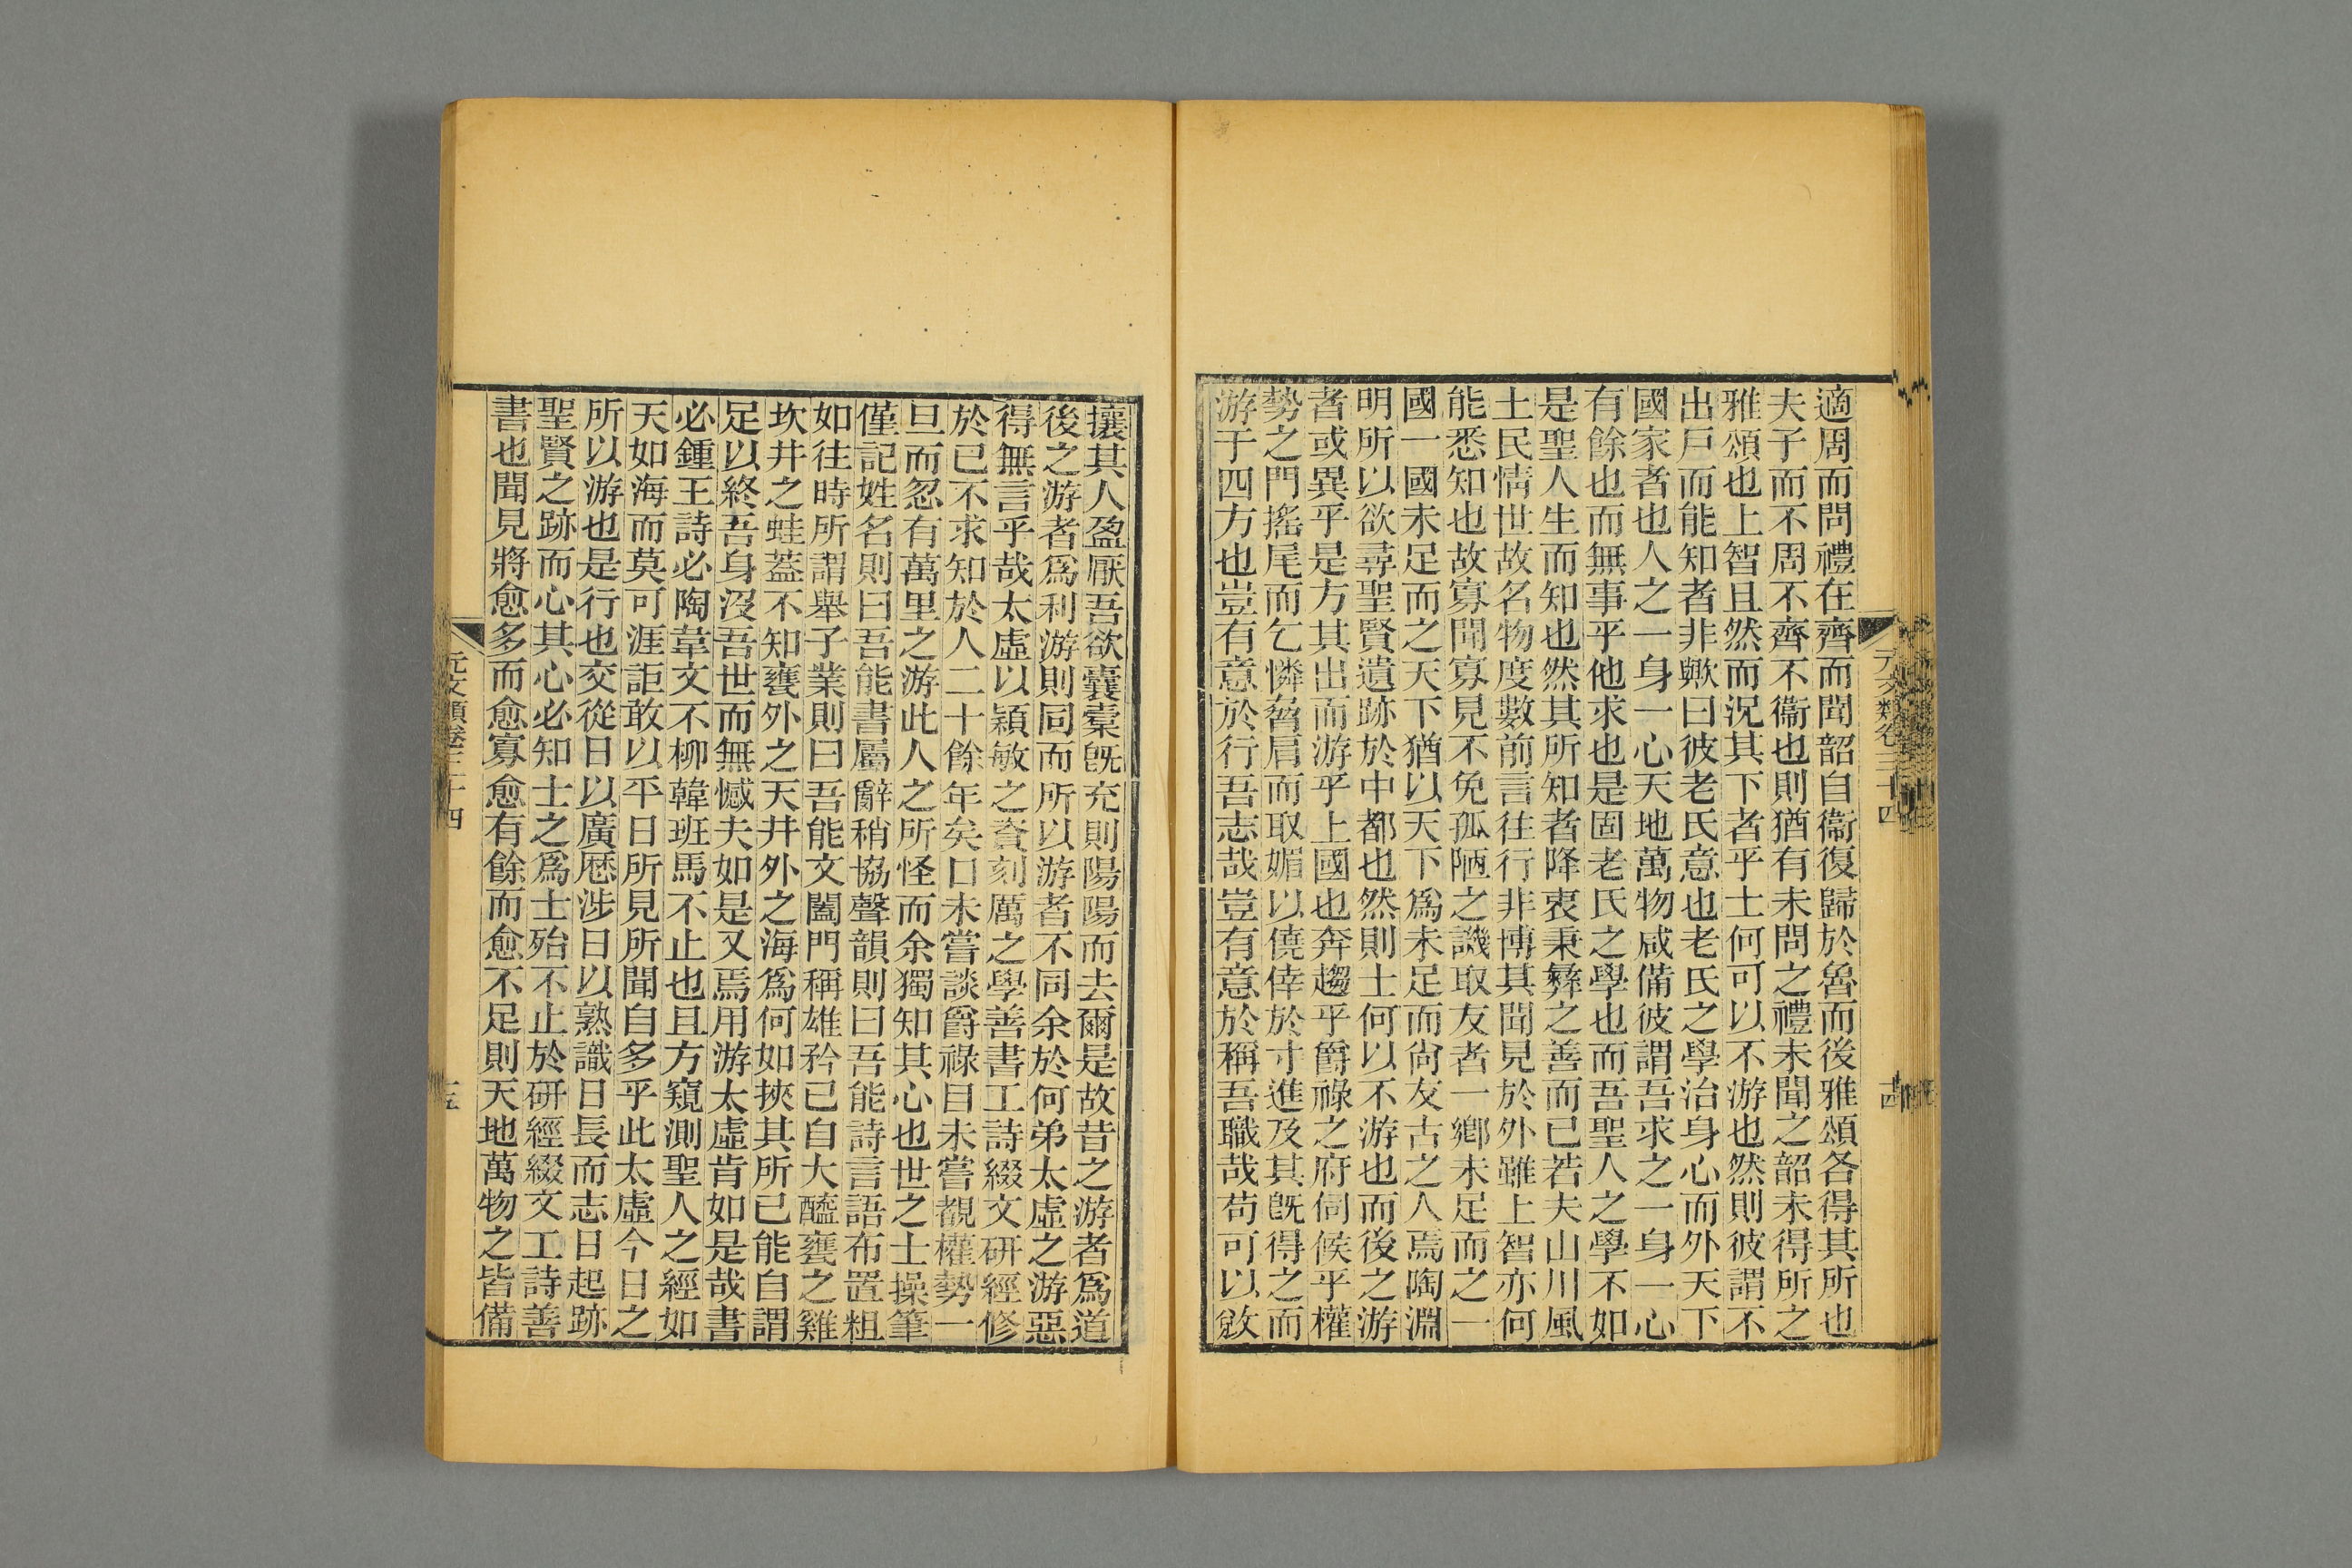 元文類卷三十四
十四
適周而問禮在齊而聞韶自衞復歸於魯而後雅頌各得其所也
夫子而不周不齊不衞也則猶有未問之禮未聞之韶未得所之
雅頌也上智且然而況其下者乎士何可以不游也然則彼謂不
出戶而能知者非歟曰彼老氏意也老氏之學治身心而外天下
國家者也人之一身一心天地萬物咸備彼謂吾求之一身一心
有餘也而無事乎他求也是固老氏之學也而吾聖人之學不如
是聖人生而知也然其所知者降衷秉彝之善而已若夫山川風
土民情世故名物度數前言往行非博其聞見於外雖上智亦何
能悉知也故寡聞寡見不免孤陋之譏取友者一鄉未足而之一
國一國未足而之天下猶以天下爲未足而尙友古之人焉陶淵
明所以欲尋聖賢遺跡於中都也然則士何以不游也而後之游
者或異乎是方其出而游乎上國也奔趨乎爵祿之府伺候乎權
勢之門搖尾而乞憐脅肩而取媚以僥倖於寸進及其旣得之而
游于四方也豈有意於行吾志哉豈有意於稱吾職哉苟可以敓
攘其人盈厭吾欲囊橐旣充則陽陽而去爾是故昔之游者爲道
後之游者爲利游則同而所以游者不同余於何弟太虛之游惡
得無言乎哉太虛以穎敏之資刻厲之學善書工詩綴文硏經修
於已不求知於人二十餘年矣口未嘗談爵祿目未嘗覩權勢一
旦而忽有萬里之游此人之所怪而余獨知其心也世之士操筆
僅記姓名則曰吾能書屬辭稍協聲韻則曰吾能詩言語布置粗
如往時所謂舉子業則曰吾能文闔門稱雄矜已自大醯甕之雞
坎井之蛙蓋不知甕外之天井外之海爲何如挾其所已能自謂
足以終吾身沒吾世而無憾夫如是又焉用游太虛肯如是哉書
必鍾王詩必陶韋文不柳韓班馬不止也且方窺測聖人之經如
天如海而莫可涯詎敢以平日所見所聞自多乎此太虛今日之
所以游也是行也交從日以廣歷涉日以熟識日長而志日起跡
聖賢之跡而心其心必知士之爲士殆不止於硏經綴文工詩善
書也聞見將愈多而愈寡愈有餘而愈不足則天地萬物之皆備
元文類卷三十四
十五